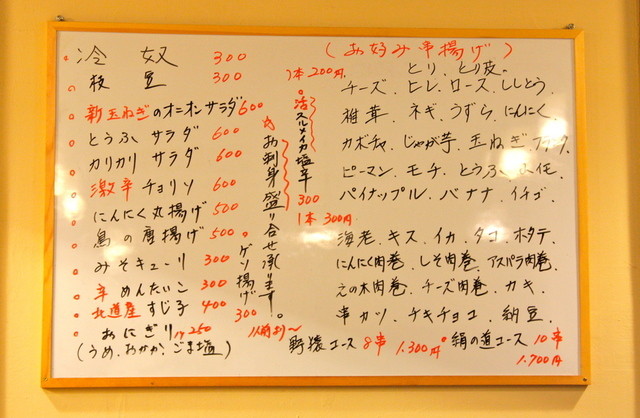 冷奴 300
枝豆 300
新玉ねぎのオニオンサラダ 600
とうふサラダ 600
カリカリサラダ 600
激辛チョリソ 600
にんにく丸揚げ 500
鳥の唐揚げ 500
みそキューリ 300
辛めんたいこ 300
北道産すじ子 400
おにぎり 250
(うめ、おかか、ごま塩)
お刺身盛り合せ承ります。
1人前より〜
ゲソ揚げ 300
活スルメイカ塩辛 300
(お好み串揚げ)
1本200円。
とり、とり皮、
チーズ、ヒレ、ロース、ししとう、
椎茸、ネギ、うずら、にんにく、
カボチャ、じゃが芋、玉ねぎ、
ピーマン、モチ、とうふ、
パイナップル、バナナ、イチゴ、
1本300円
海老、キス、イカ、タコ、ホタテ、
にんにく肉巻、しそ肉巻、アスパラ肉巻、
えの木肉巻、チーズ肉巻、カキ、
串カツ、チキチョコ、納豆、
野猿コース 8串 1.300円
絹の道コース 10串 1.700円